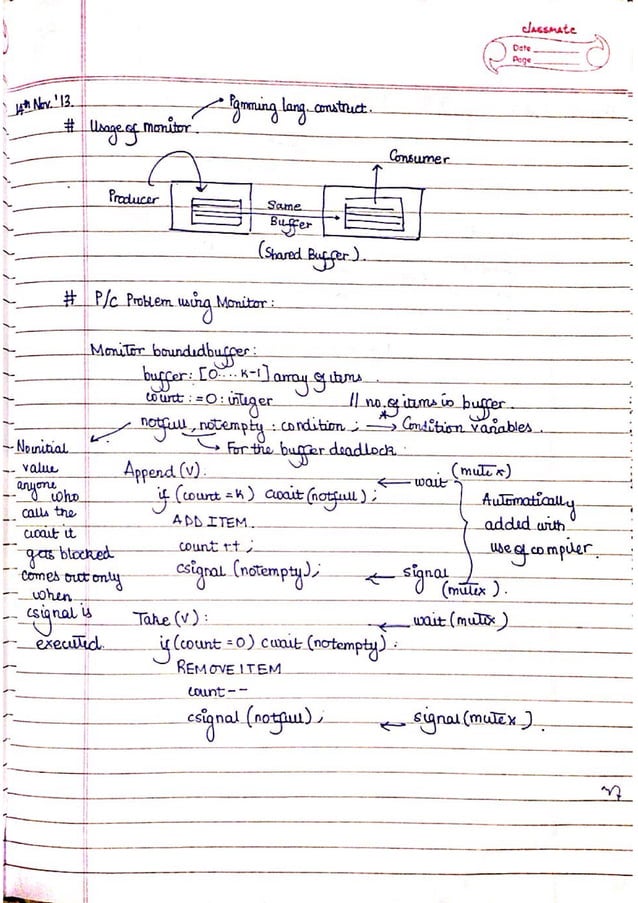 classmate
Date
Page
14th Nov.'13.
Pgmming lang. construct.
# Usage of monitor.
Consumer
Producer
Same
Buffer
(Shared Buffer).
# P/C Problem using Monitor:
Monitor boundedbuffer:
buffer: [0....k-1] array of items.
count := 0: integer // no. of items in buffer.
notfull, notempty: condition; → Condition variables.
For the buffer deadlock.
No initial
value
anyone who
calls the
cwait it
gets blocked
comes out only
when
csignal is
executed.
Append(v). ← wait (mutex)
if (count = k) cwait (notfull);
ADD ITEM.
count ++;
csignal (notempty); ← signal (mutex).
Automatically
added with
use of compiler.
Take(v): ← wait (mutex)
if (count = 0) cwait (notempty):
REMOVE ITEM
count --
csignal (notfull); ← signal (mutex).